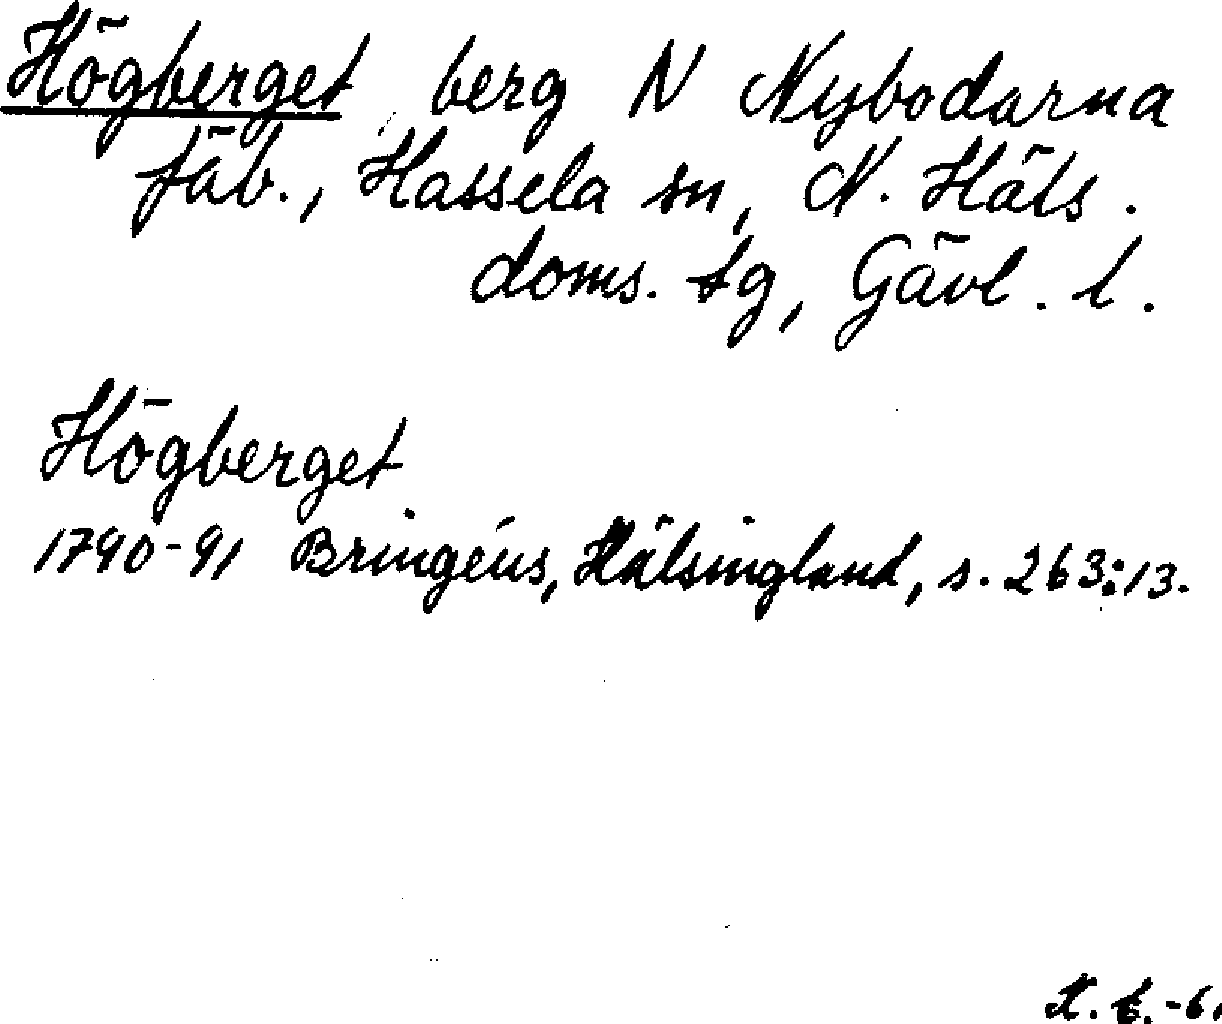 Högberget, berg N Nybodarna
fäb., Hassela sn, N. Häls.
doms. sg, Gävl. l.
Högberget
1790-91 Bringéus, Hälsingland, s. 263:13.